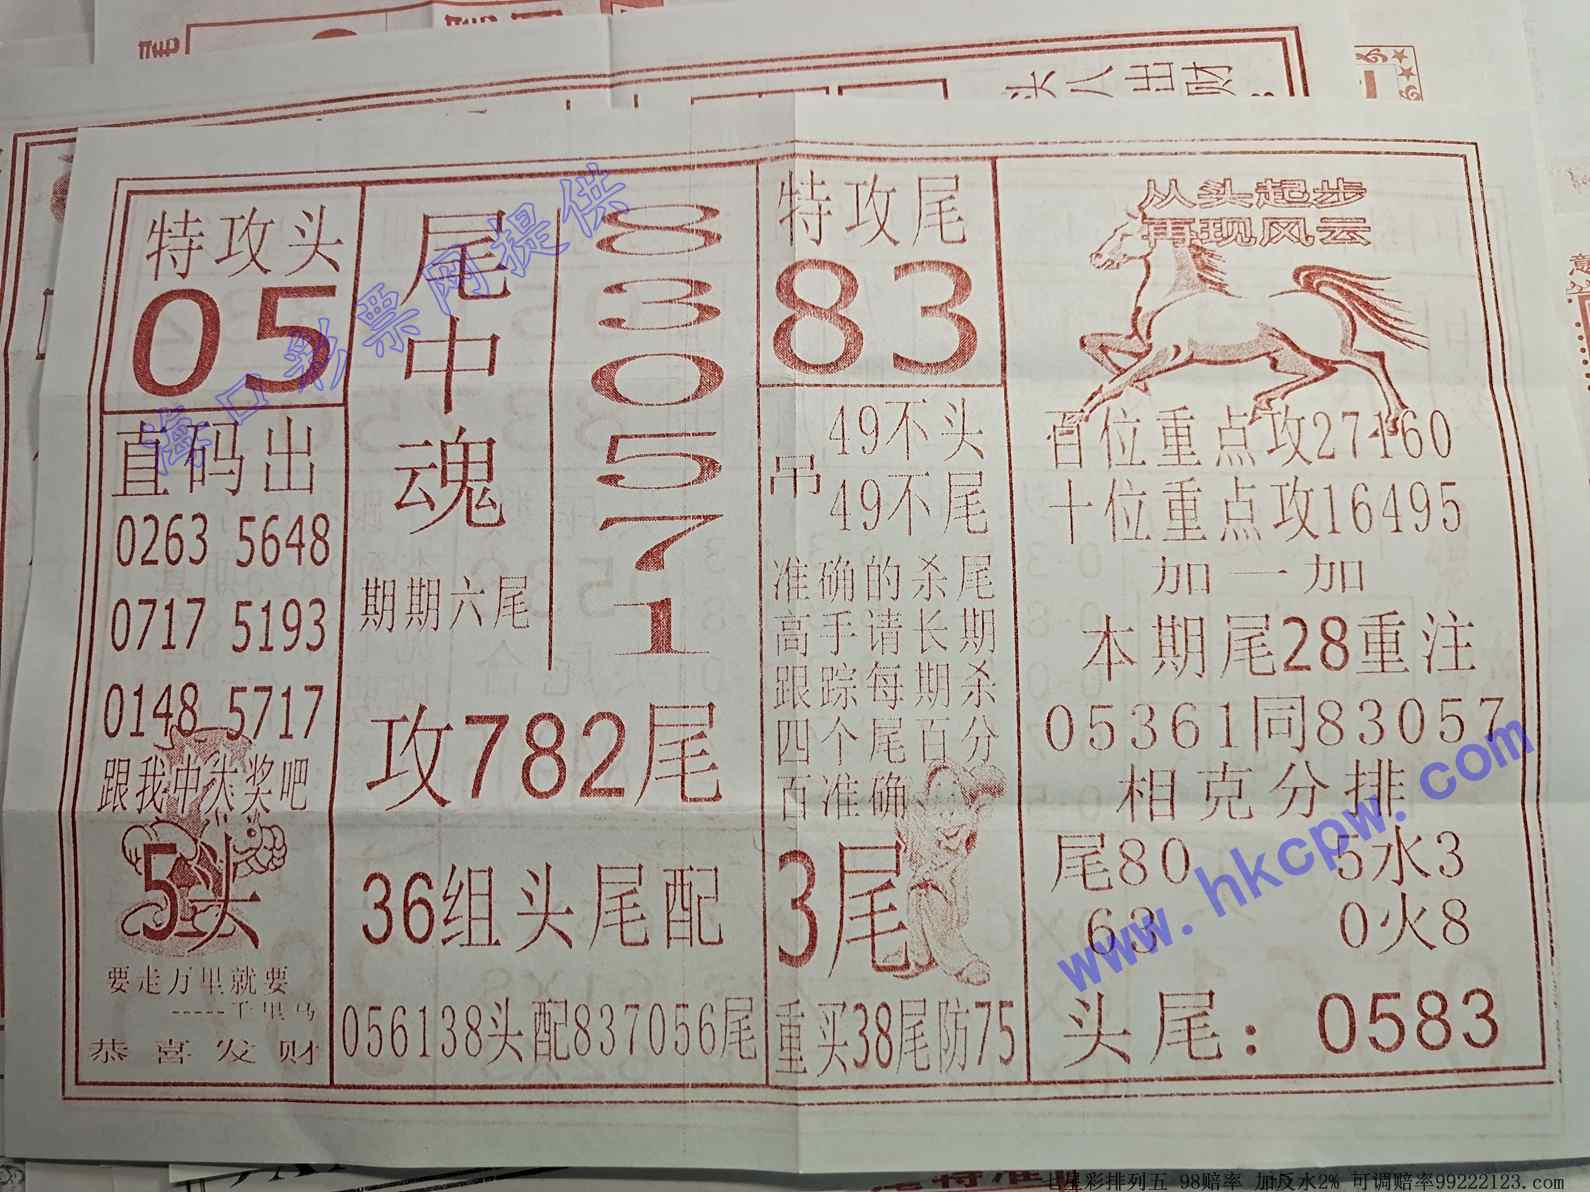 特攻头
05
直码出
0263 5648
0717 5193
0148 5717
跟我中大奖吧
5头
要走万里就要
-----千里马
恭喜发财
尾中魂
期期六尾
8
3
0
5
7
1
攻782尾
36组头尾配
056138头配837056尾
特攻尾
83
49不头
吊
49不尾
准确的杀尾
高手请长期
跟踪每期杀
四个尾百分
百准确
3尾
重买38尾防75
从头起步
再现风云
百位重点攻27160
十位重点攻16495
加一加
本期尾28重注
05361同83057
相克分排
尾80 5水3
63 0火8
头尾：0583
头人出财
海口彩票网提供
www.hkcpw.com
七星彩排列五 98赔率 加反水2% 可调赔率99222123.com